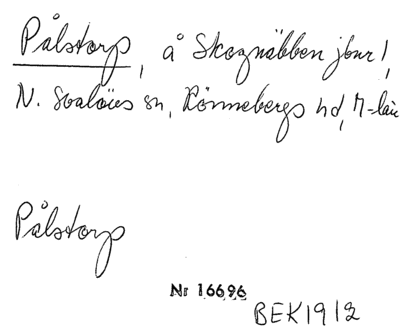 Pålstorp, å Skognäbben jbur 1,
N. Svalövs sn, Rönnebergs hd, M-län
Pålstorp
Nr 16696
BEK1912